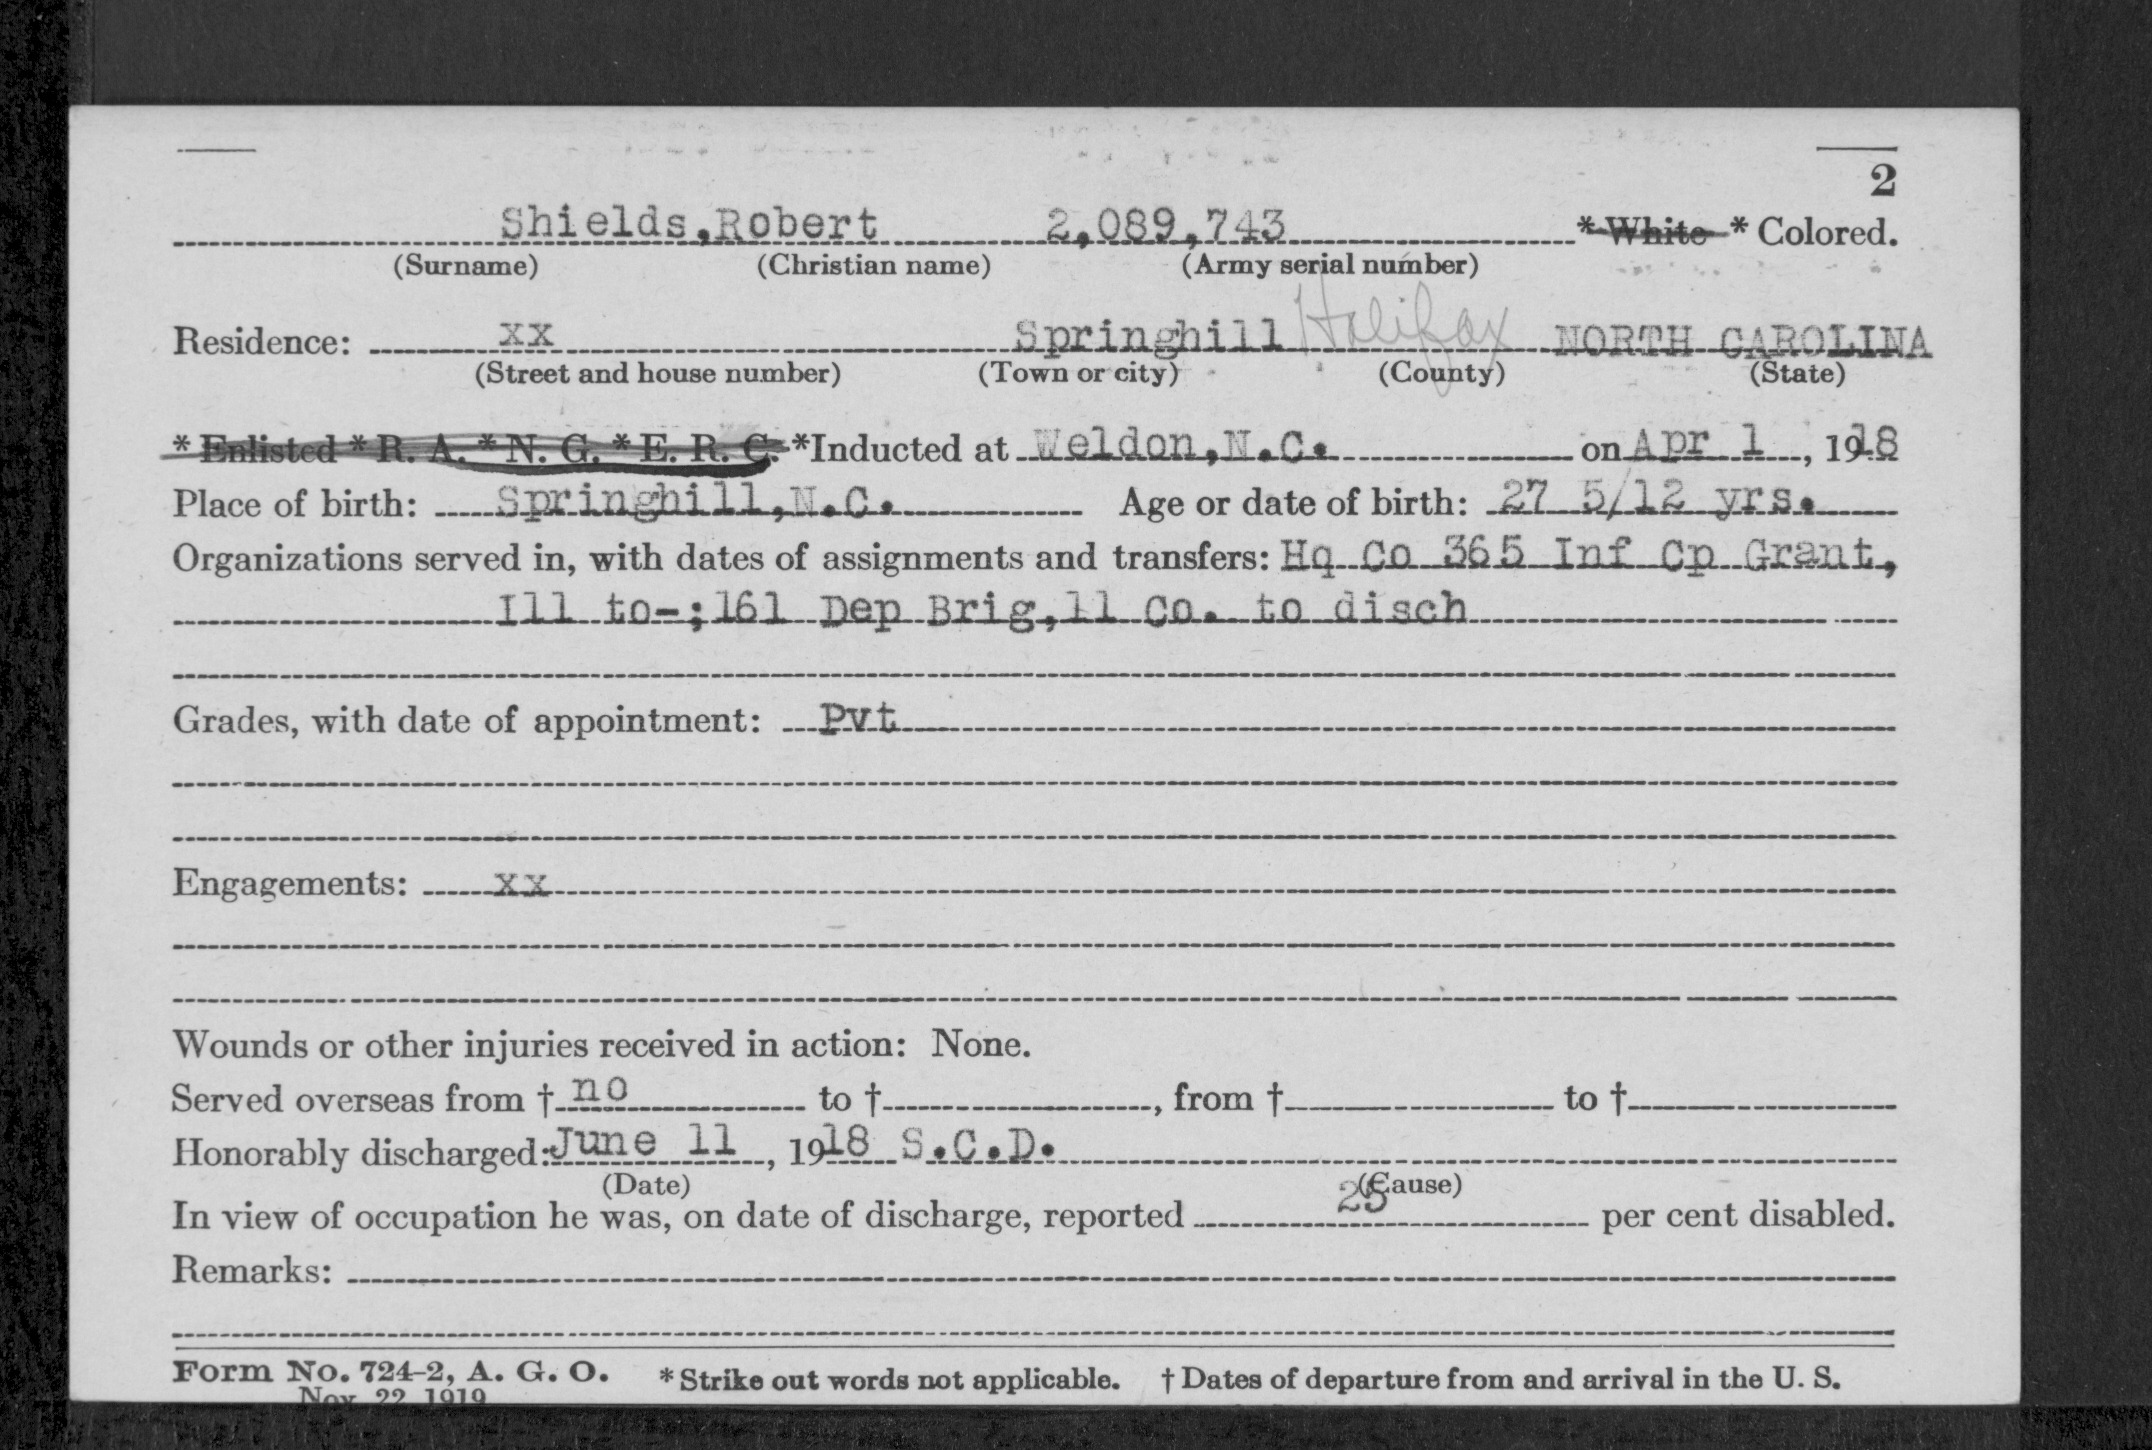 2
Shields,Robert 2,089,743 * White * Colored.
(Surname) (Christian name) (Army serial number)
Residence: xx Springhill Halifax NORTH CAROLINA
(Street and house number) (Town or city) (County) (State)
* Enlisted * R. A. * N. G. * E. R. C. *Inducted at Weldon,N.C. on Apr 1, 1918
Place of birth: Springhill,N.C. Age or date of birth: 27 5/12 yrs.
Organizations served in, with dates of assignments and transfers: Hq Co 365 Inf Cp Grant,
Ill to-;161 Dep Brig,11 Co. to disch
Grades, with date of appointment: Pvt
Engagements: xx
Wounds or other injuries received in action: None.
Served overseas from † no to †, from † to †
Honorably discharged: June 11, 1918 S.C.D.
(Date) (Cause)
In view of occupation he was, on date of discharge, reported 25 per cent disabled.
Remarks:
Form No. 724-2, A. G. O. * Strike out words not applicable. † Dates of departure from and arrival in the U. S.
Nov. 22, 1919